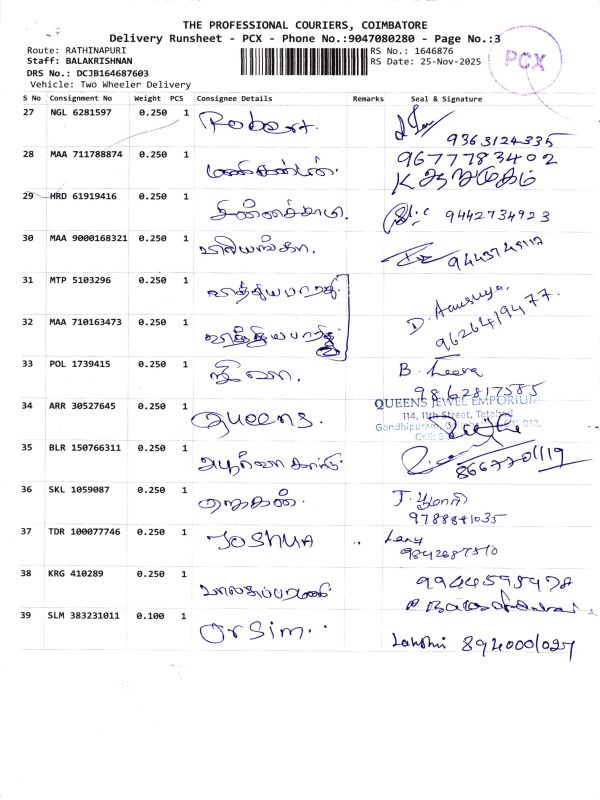 THE PROFESSIONAL COURIERS, COIMBATORE
Delivery Runsheet - PCX - Phone No.:9047080280 - Page No.:3
Route: RATHINAPURI
Staff: BALAKRISHNAN
DRS No.: DCJB164687603
Vehicle: Two Wheeler Delivery
RS No.: 1646876
RS Date: 25-Nov-2025
PCX
S No Consignment No Weight PCS Consignee Details Remarks Seal & Signature
27 NGL 6281597 0.250 1 Robert. 9363124335
28 MAA 711788874 0.250 1 மணிகண்டன். 9677783402
K ஆறுமுகம்
29 HRD 61919416 0.250 1 சின்னச்சாமி. 9442734923
30 MAA 9000168321 0.250 1
31 MTP 5103296 0.250 1 D. Anusuya.
32 MAA 710163473 0.250 1 9626419477.
33 POL 1739415 0.250 1 B. Leela
9862817585
34 ARR 30527645 0.250 1 Queens.
QUEENS JEWEL EMPORIUM
114, 11th Street,
Gandhipuram,
Cell:
35 BLR 150766311 0.250 1 8667701119
36 SKL 1059087 0.250 1
9788891035
37 TDR 100077746 0.250 1 JOSHUA
9842687510
38 KRG 410289 0.250 1 9944595978
39 SLM 383231011 0.100 1 Orsim. Lakshmi 8940001027